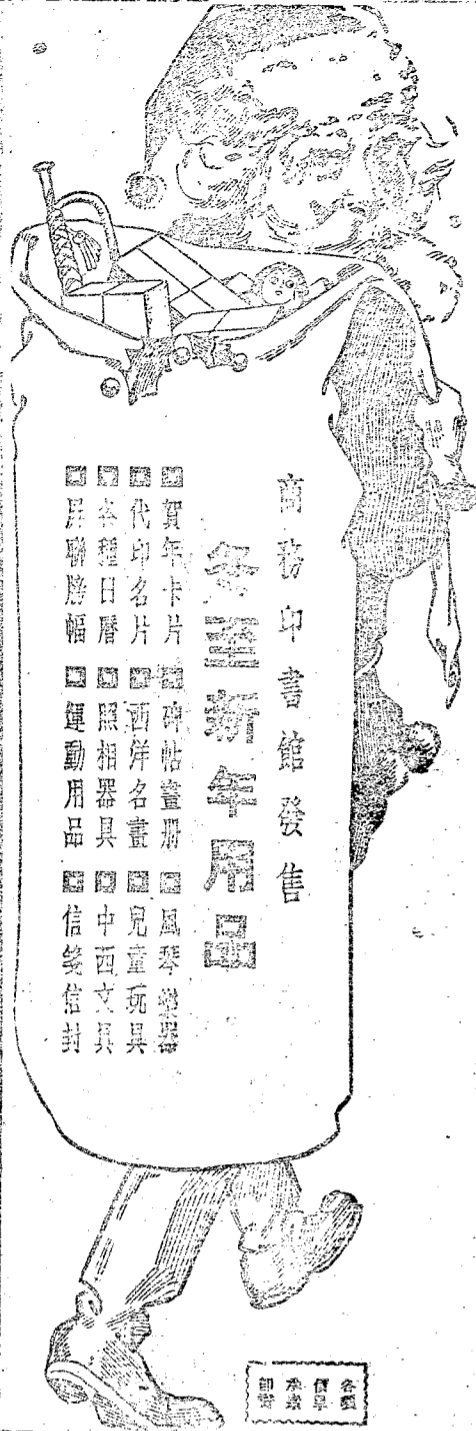 商務印書館發售
冬至新年用品
賀年卡片 碑帖畫册 風琴樂器
代印名片 西洋名畫 兒童玩具
各種日曆 照相器具 中西文具
屏聯牓幅 運動用品 信箋信封
各類
價目
承索
即寄